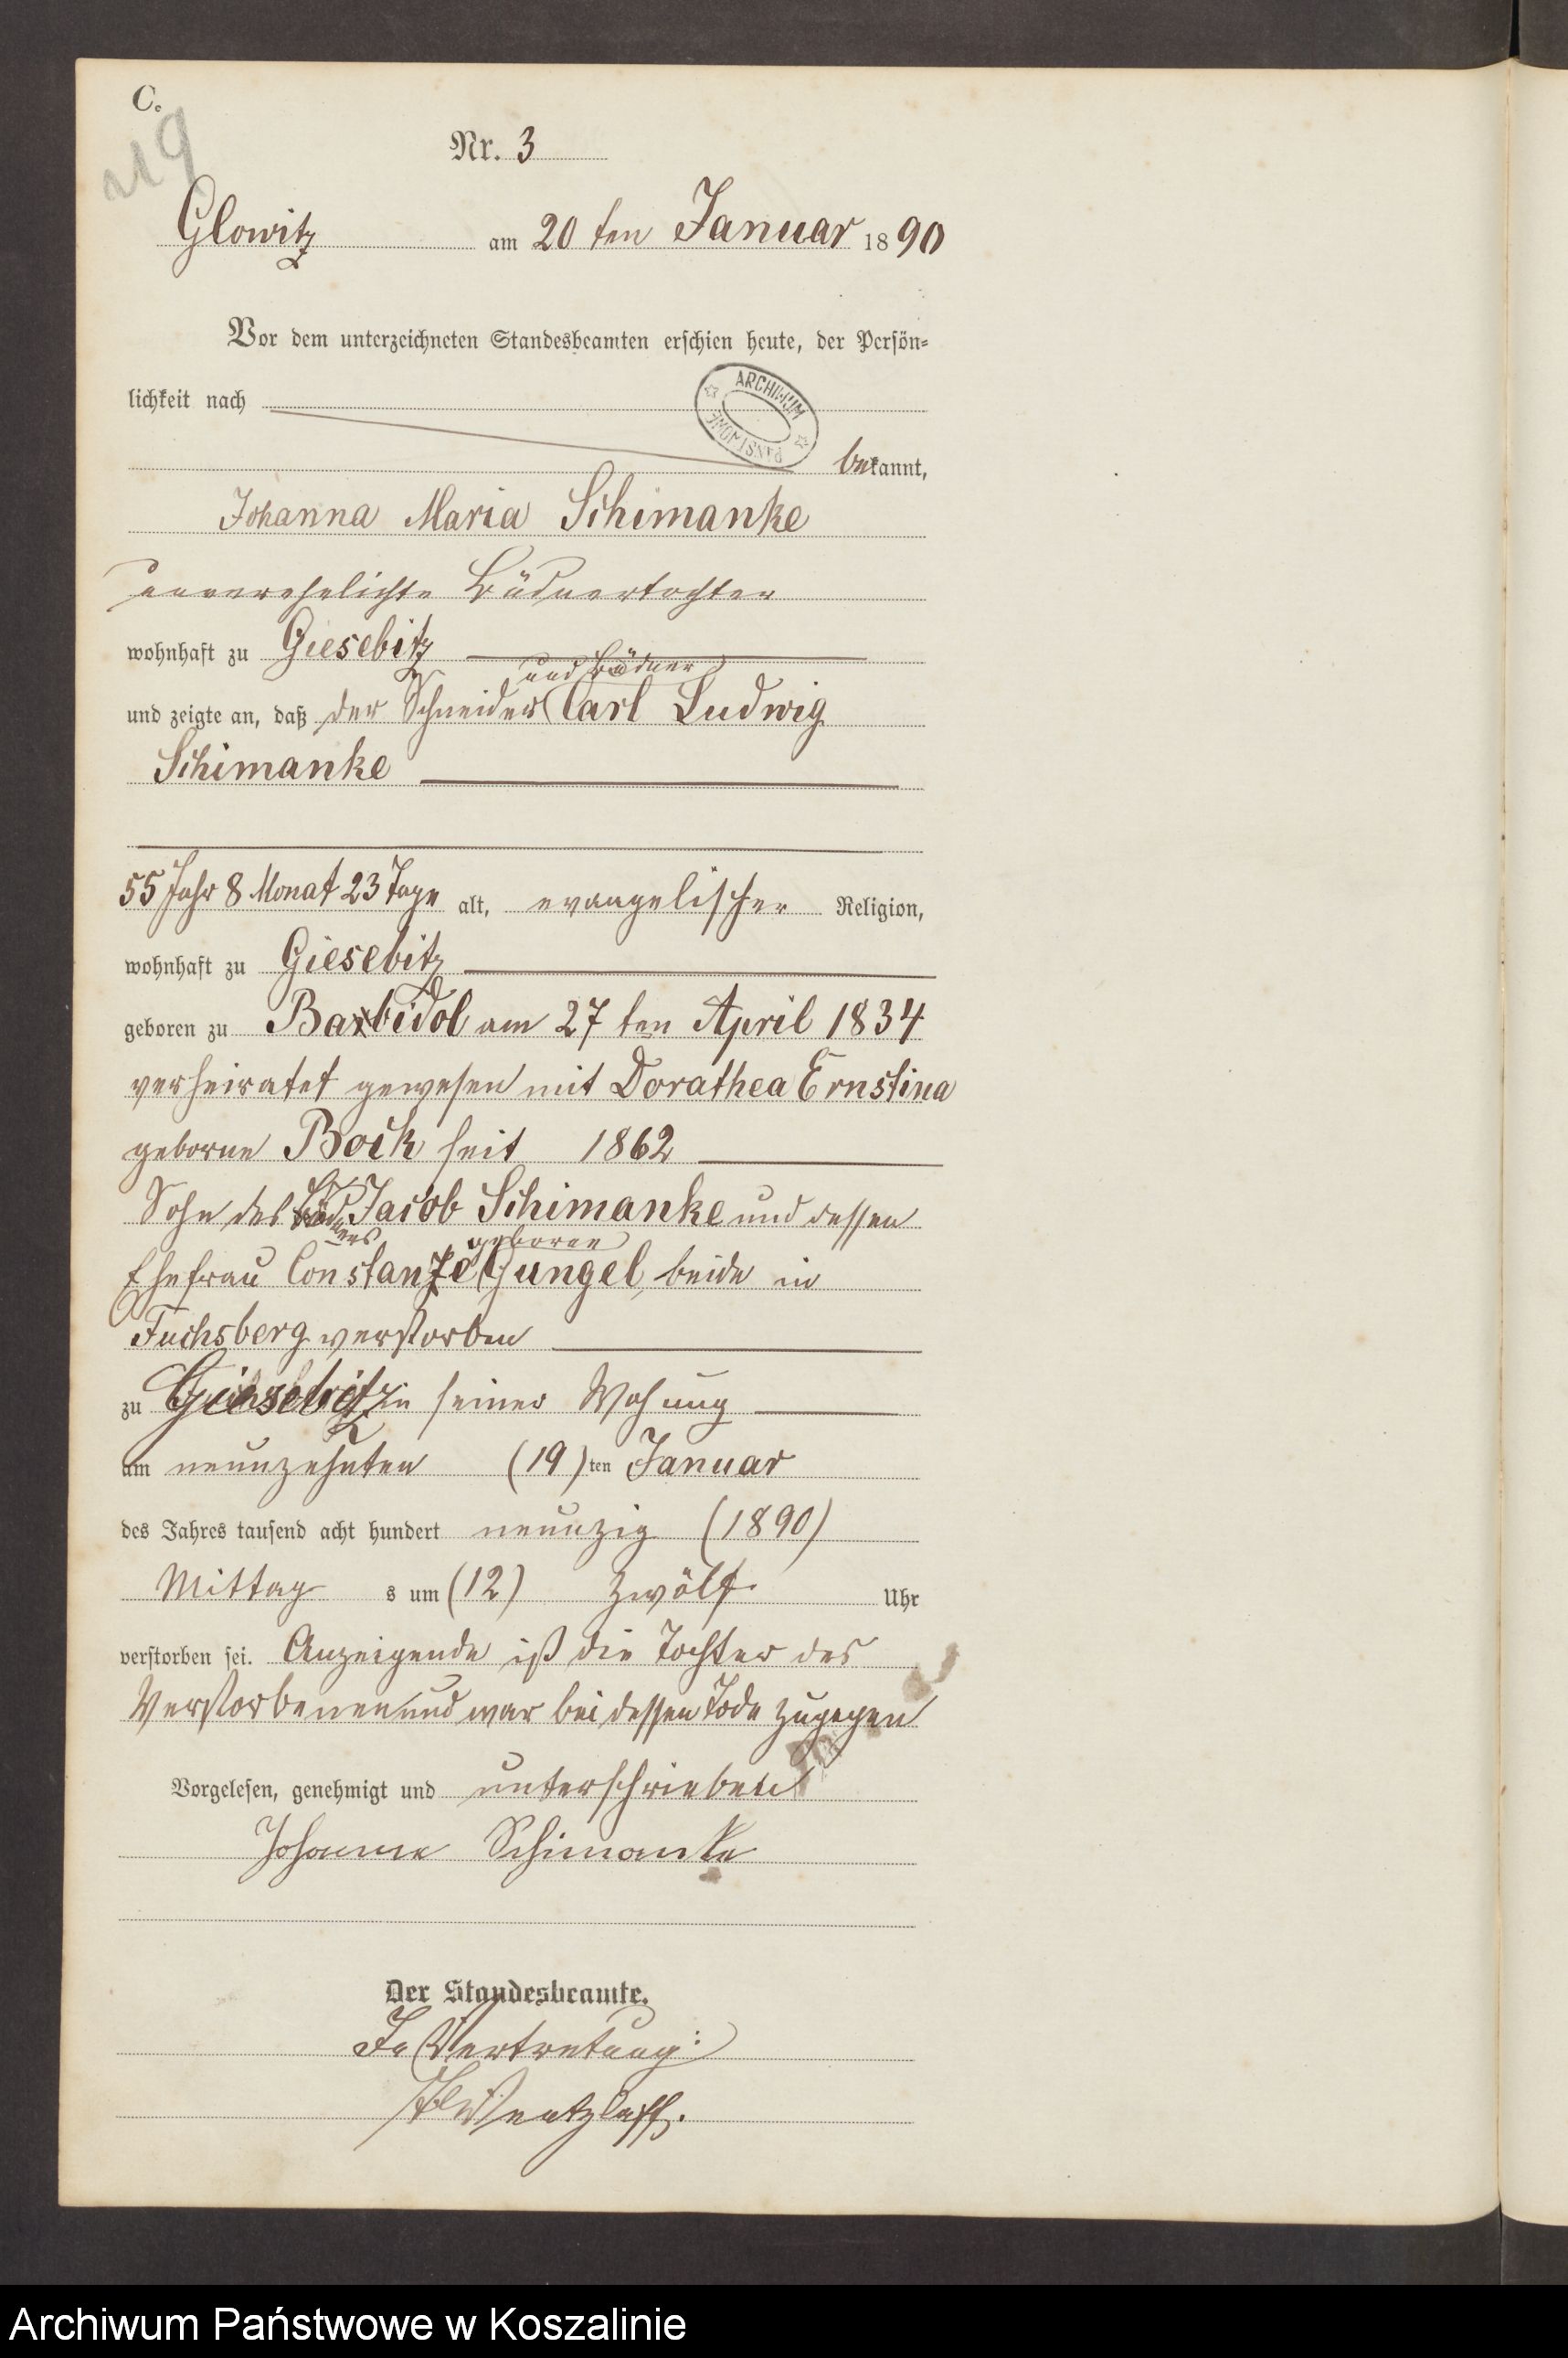 C.
219
Nr. 3
Glowitz am 20 ten Januar 1890
Vor dem unterzeichneten Standesbeamten erschien heute, der Persön-
lichkeit nach
ARCHIWUM PAŃSTWOWE
bekannt,
Johanna Maria Schimanke
unverehelichte Büdnertochter
wohnhaft zu Giesebitz
und Büdner
und zeigte an, daß der Schneider Carl Ludwig
Schimanke
55 Jahr 8 Monat 23 Tage alt, evangelischer Religion,
wohnhaft zu Giesebitz
geboren zu am 27 ten April 1834
verheiratet gewesen mit Dorathea Ernstina
geborne Bock seit 1862
Sohn des Büdners Jacob Schimanke und dessen
geborene
Ehefrau Constanze Gungel, beide in
Fuchsberg verstorben
zu Giesebitz in seiner Wohnung
am neunzehnten (19) ten Januar
des Jahres tausend acht hundert neunzig (1890)
Mittag s um (12) zwölf Uhr
verstorben sei. Anzeigende ist die Tochter des
Verstorbenen und war bei dessen Tode zugegen
Vorgelesen, genehmigt und unterschrieben
Johanne Schimanke
Der Standesbeamte.
In Vertretung:
Wentzlaff.
Archiwum Państwowe w Koszalinie